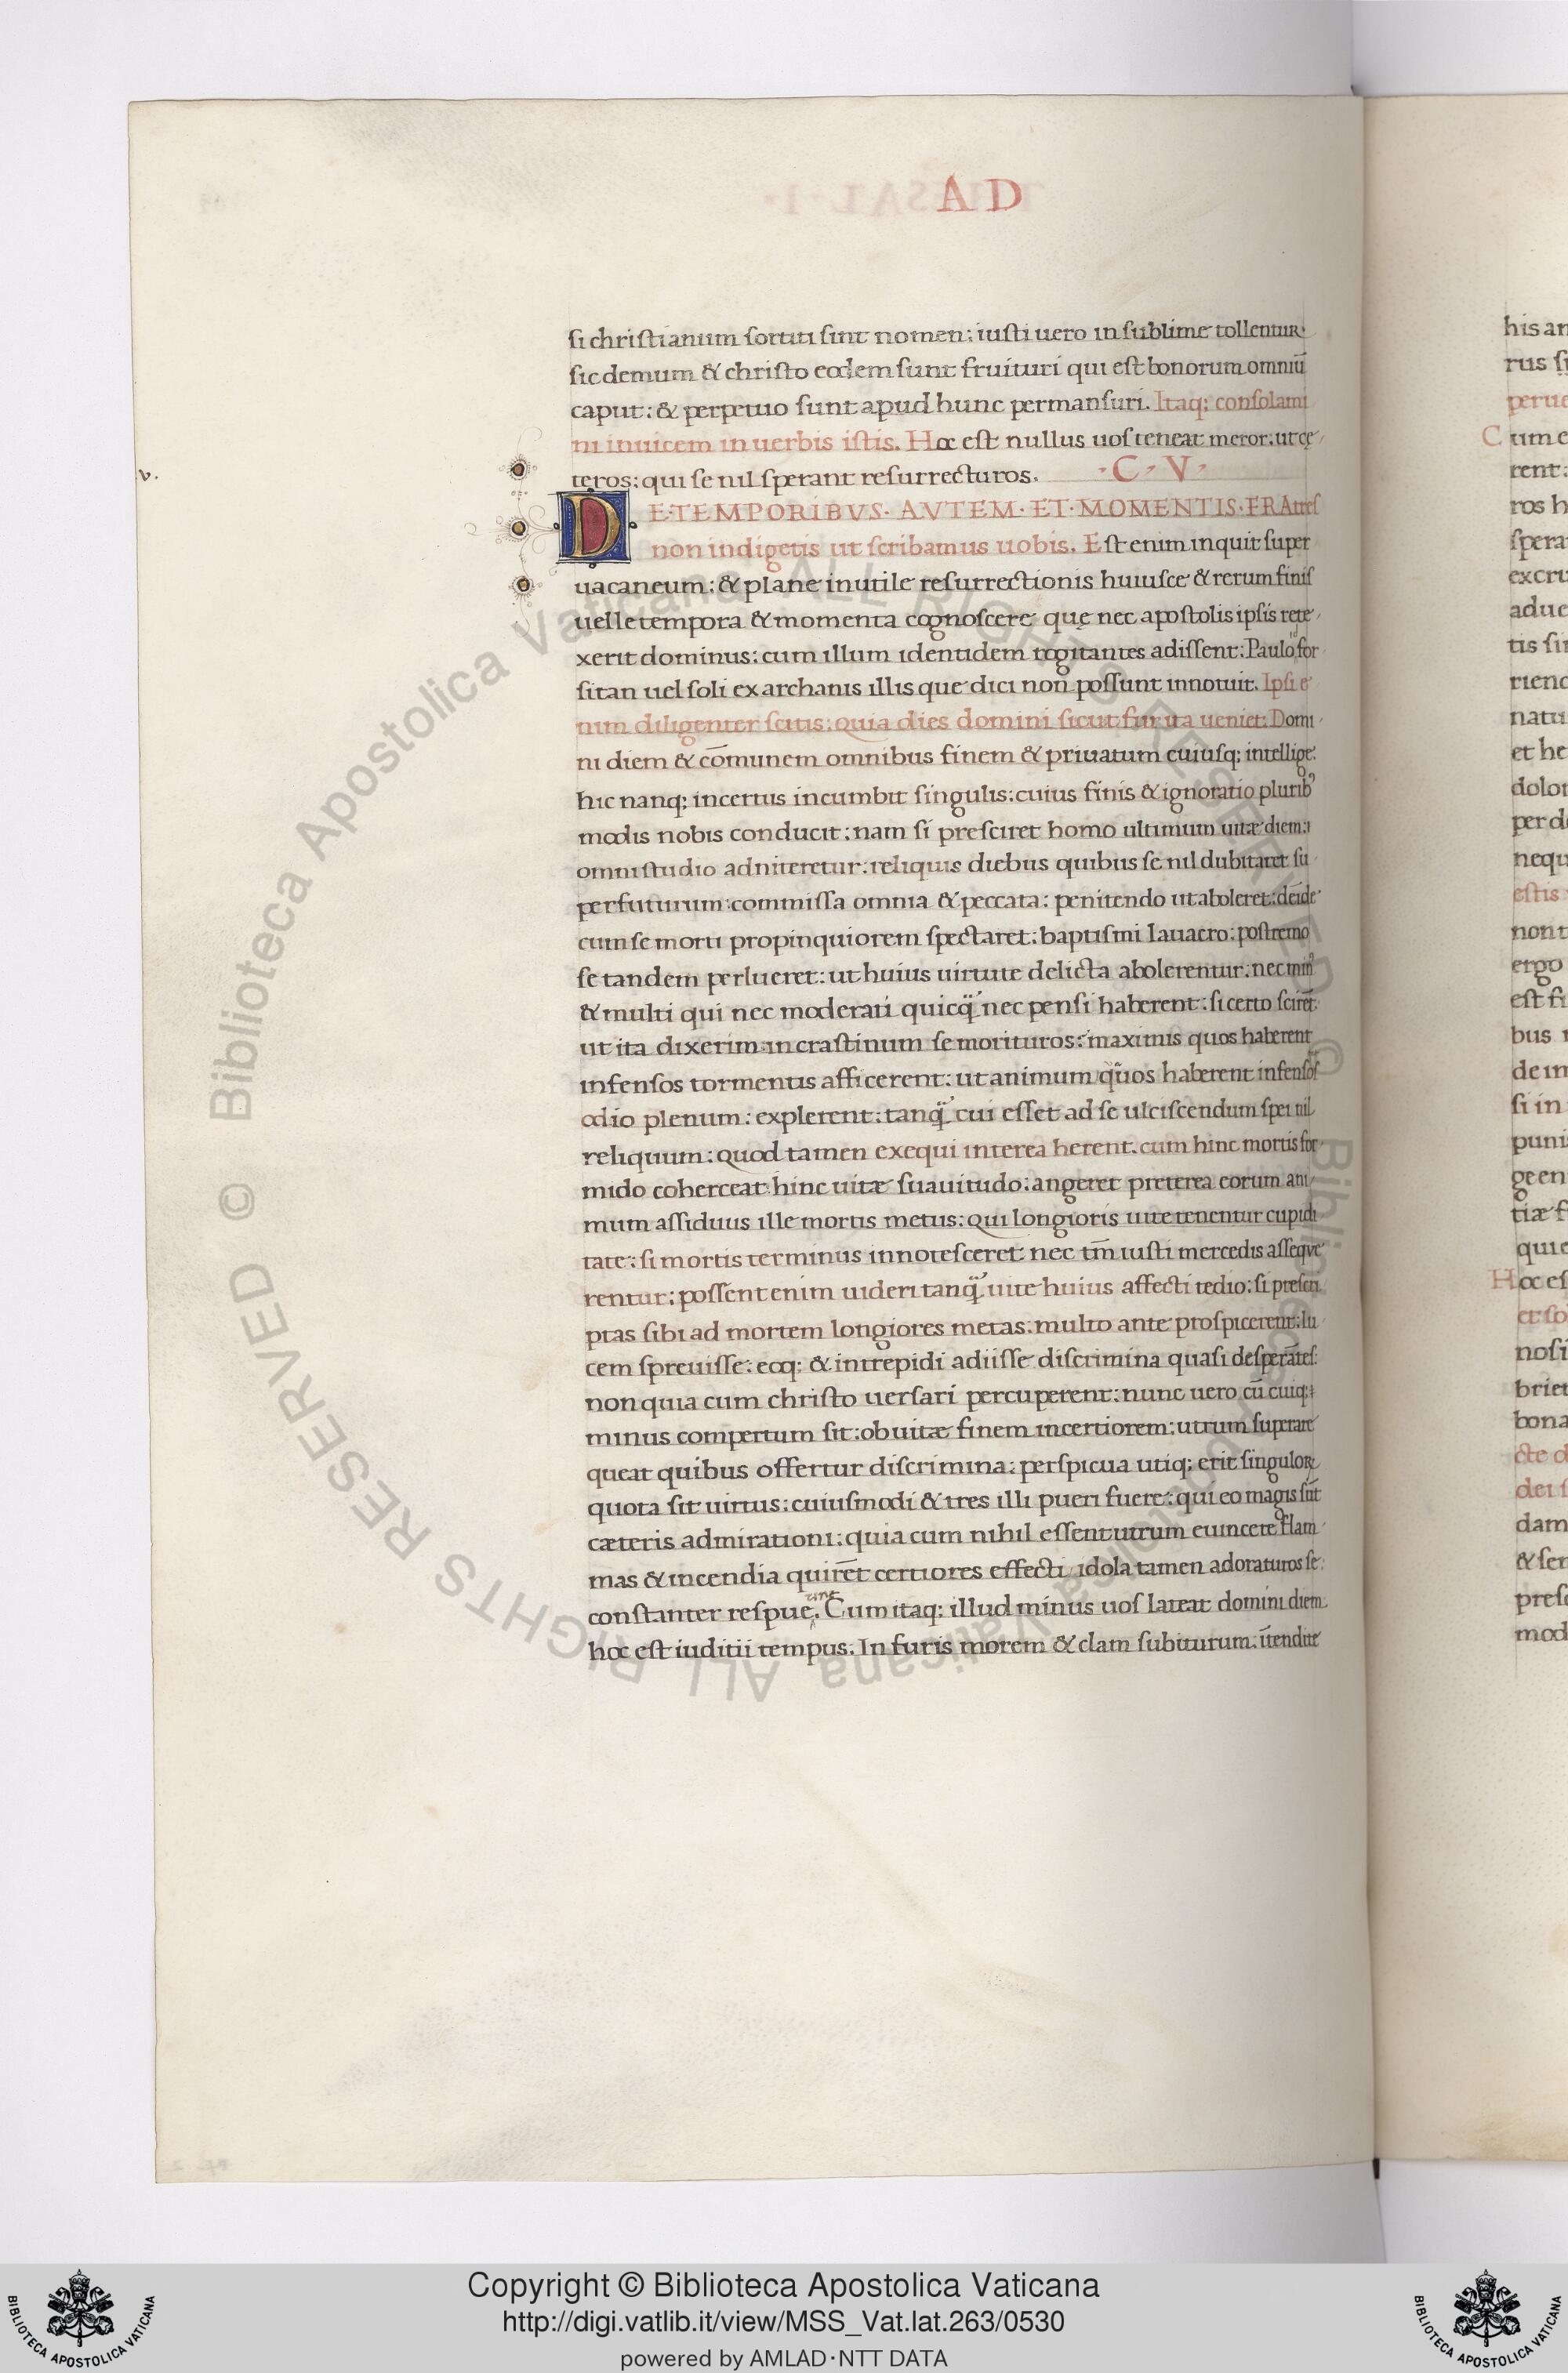 AD
si christianum sortiti sint nomen: iusti uero in sublime tollentur:
sic demum & christo eodem sunt fruituri qui est bonorum omniū
caput: & perpetuo sunt apud hunc permansuri. Itaq; consolami
ni inuicem in uerbis istis. Hoc est nullus uos teneat meror: ut cę
teros: qui se nil sperant resurrecturos. ·C·V·
v.
DE·TEMPORIBVS·AVTEM·ET·MOMENTIS·FRAtres
non indigetis ut scribamus uobis. Est enim inquit super
uacaneum: & plane inutile resurrectionis huiusce & rerum finis
uelle tempora & momenta cognoscere quę nec apostolis ipsis rete
xerit dominus: cum illum identidem rogitantes adissent: Paulo for
sitan uel soli ex archanis illis que dici non possunt innotuit. Ipsi e
nim diligenter scitis: quia dies domini sicut fur ita ueniet: Domi
ni diem & cōmunem omnibus finem & priuatum cuiusq; intellige:
hic nanq; incertus incumbit singulis: cuius finis & ignoratio plurib9
modis nobis conducit: nam si presciret homo ultimum uitæ diem:
omni studio adniteretur: reliquis diebus quibus se nil dubitaret su
perfuturum: commissa omnia & peccata: penitendo ut aboleret: deīde
cum se morti propinquiorem spectaret: baptismi lauacro: postremo
se tandem perlueret: ut huius uirtute delicta abolerentur: nec min9
& multi qui nec moderati quicq̃ nec pensi haberent: si certo scirēt
ut ita dixerim in crastinum se morituros: maximis quos haberent
infensos tormentis afficerent: ut animum quos haberent infensos
odio plenum: explerent: tanq̃ cui esset ad se ulciscendum spei nil
reliquum: quod tamen exequi interea herent. cum hinc mortis for
mido coherceat hinc uitæ suauitudo: angeret preterea eorum ani
mum assiduus ille mortis metus: qui longioris uite tenentur cupidi
tate: si mortis terminus innotesceret nec tm̄ iusti mercedis asseque
rentur: possent enim uideri tanq̃ uite huius affecti tedio: si prescri
ptas sibi ad mortem longiores metas: multo ante prospicerent: lu
cem spreuisse: eoq; & intrepidi adiisse discrimina quasi desperātes:
non quia cum christo uersari percuperent: nunc uero cū cuiq;
minus compertum sit: ob uitæ finem incertiorem: utrum superare
queat quibus offertur discrimina: perspicua utiq; erit singuloꝝ
quota sit uirtus: cuiusmodi & tres illi pueri fuere: qui eo magis sūt
cæteris admirationi: quia cum nihil essent utrum euincere flam
mas & incendia quirēt certiores effecti idola tamen adoraturos se:
constanter respue. Cum itaq; illud minus uos lateat domini diem
hoc est iuditii tempus. In furis morem & clam subiturum: itendite
Copyright © Biblioteca Apostolica Vaticana
http://digi.vatlib.it/view/MSS_Vat.lat.263/0530
powered by AMLAD·NTT DATA